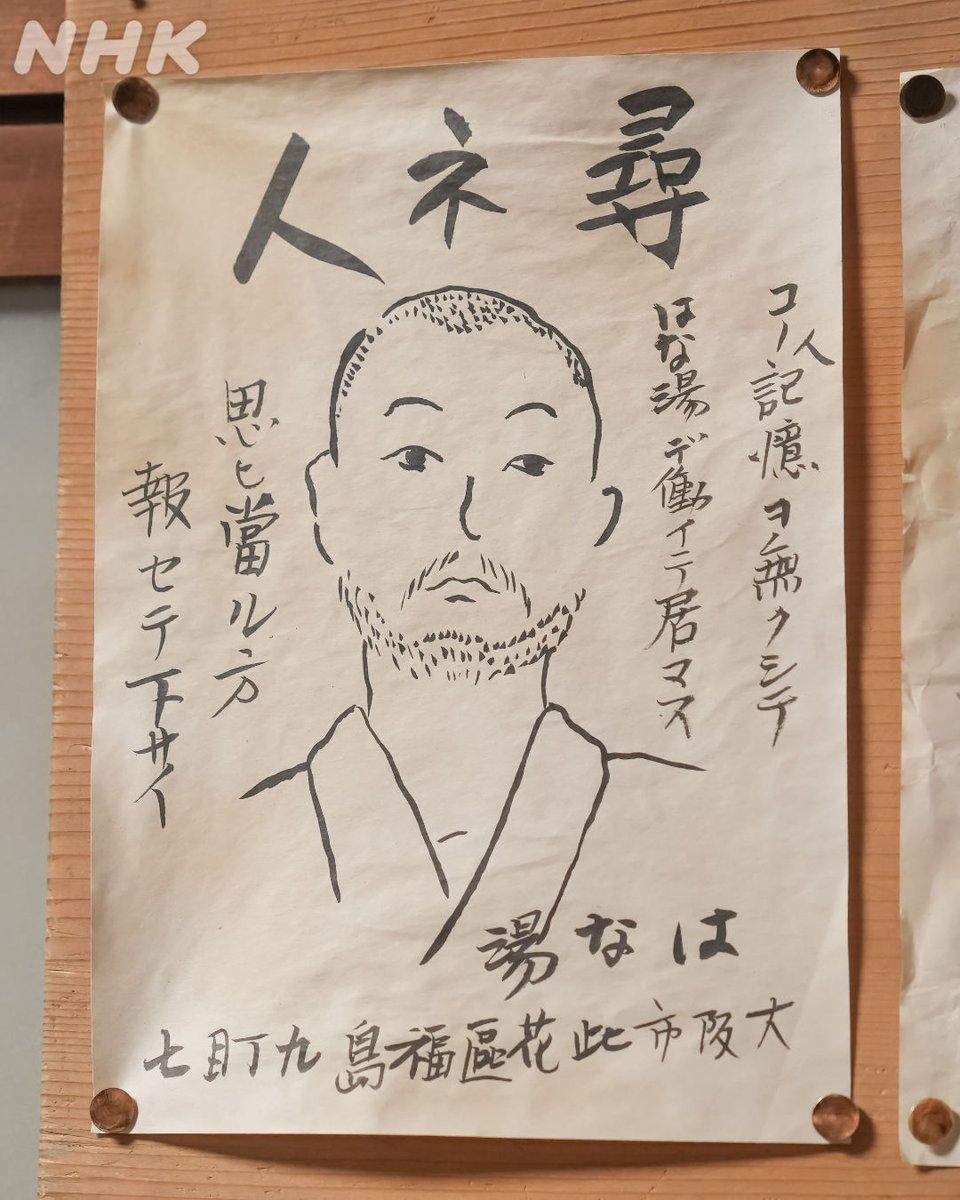 NHK
尋ネ人
コノ人記憶ヲ無クシテ
はな湯デ働イテ居マス
思ヒ當ル方
報セテ下サイ
はな湯
大阪市此花區福島九丁目七